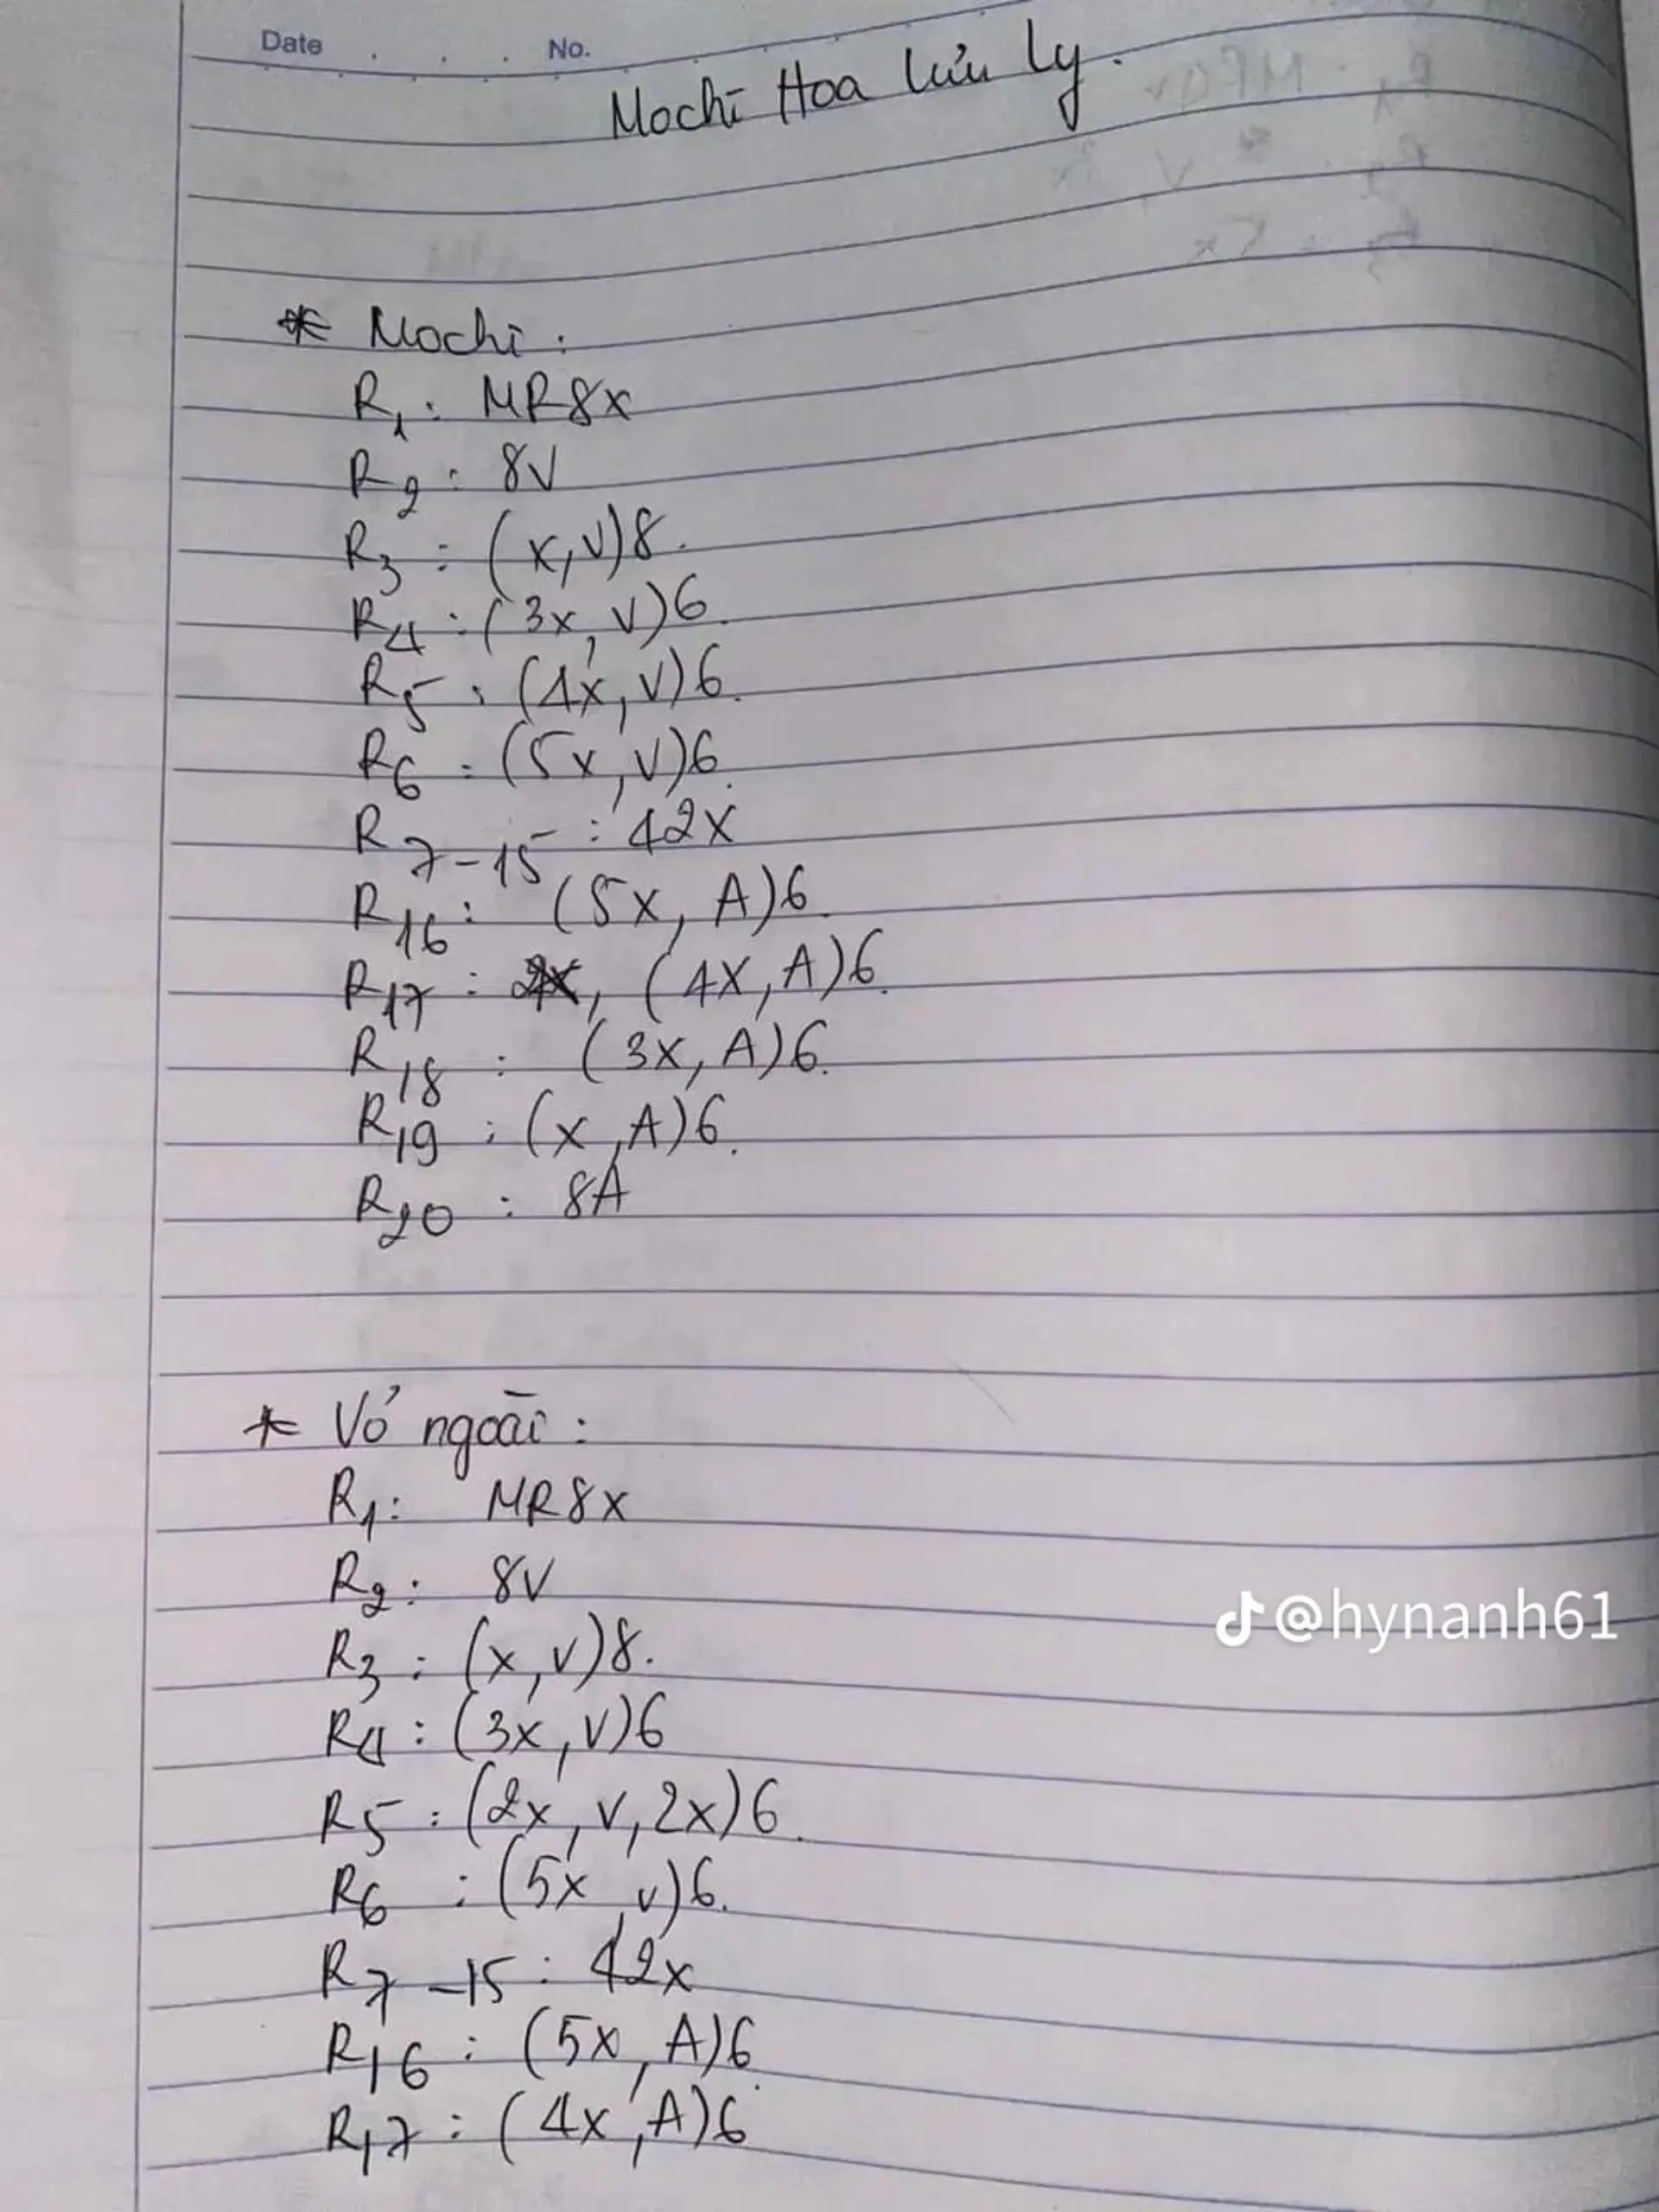 Date No.
Mochi Hoa lưu ly.
* Mochi:
R1: MR8x
R2: 8V
R3: (x,V)8.
R4: (3x, V)6.
R5: (4x, V)6.
R6: (5x, V)6.
R7-15: 42x
R16: (5x, A)6.
R17: 2x, (4x, A)6.
R18: (3x, A)6.
R19: (x, A)6.
R20: 8A
* Vỏ ngoài:
R1: MR8x
R2: 8V
R3: (x,V)8.
R4: (3x, V)6
R5: (2x, V, 2x)6.
R6: (5x, V)6.
R7-15: 42x
R16: (5x, A)6.
R17: (4x, A)6
@hynanh61